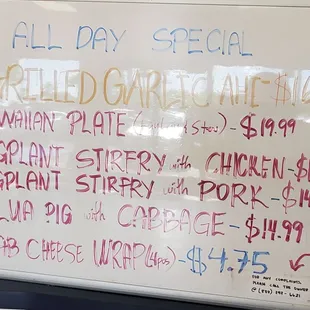 ALL DAY SPECIAL
RILLED GARLIC AHI-$1
WAIIAN PLATE (Stew)-$19.99
GPLANT STIRFRY with CHICKEN-$
GPLANT STIRFRY with PORK-$1
LUA PIG with CABBAGE-$14.99
AB CHEESE WRAP(4pcs)-$4.75
FOR ANY COMPLAINTS,
PLEASE CALL THE OWNER